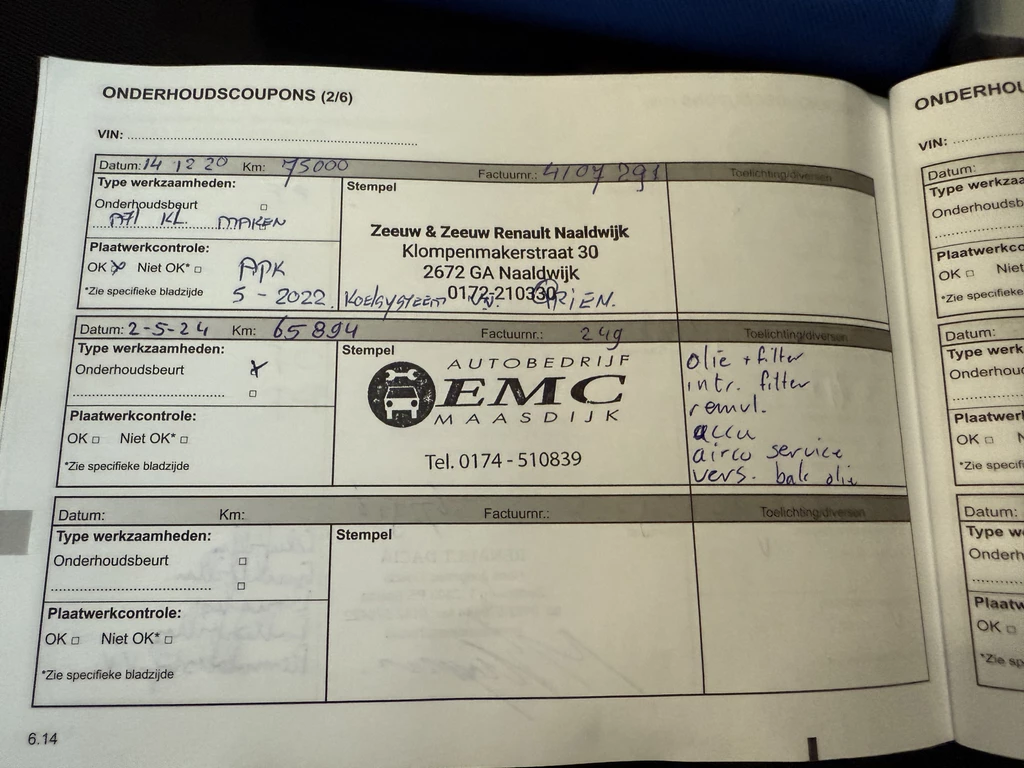 ONDERHOUDSCOUPONS (2/6)
VIN:
Datum: 14 12 20 Km: 75000 Factuurnr.: 4107 291 Toelichting/diversen
Type werkzaamheden:
Stempel
Onderhoudsbeurt
KL. MAKEN
Plaatwerkcontrole:
OK Niet OK*
APK
*Zie specifieke bladzijde
5-2022. Koelsysteem
Zeeuw & Zeeuw Renault Naaldwijk
Klompenmakerstraat 30
2672 GA Naaldwijk
0172-210330
Datum: 2-5-24 Km: 65894 Factuurnr.: 249 Toelichting/diversen
Type werkzaamheden:
Stempel
Onderhoudsbeurt
Plaatwerkcontrole:
OK Niet OK*
*Zie specifieke bladzijde
AUTOBEDRIJF
EMC
MAASDIJK
Tel. 0174-510839
olie + filter
intr. filter
remvl.
accu
airco service
vers. bak olie
Datum: Km: Factuurnr.: Toelichting/diversen
Type werkzaamheden:
Stempel
Onderhoudsbeurt
Plaatwerkcontrole:
OK Niet OK*
*Zie specifieke bladzijde
6.14
ONDERHOU
VIN:
Datum:
Type werkza
Onderhoudsb
Plaatwerkco
OK Niet
*Zie specifieke
Datum:
Type werk
Onderhoud
Plaatwerk
OK Ni
*Zie specifi
Datum:
Type w
Onderh
Plaatw
OK
*Zie sp